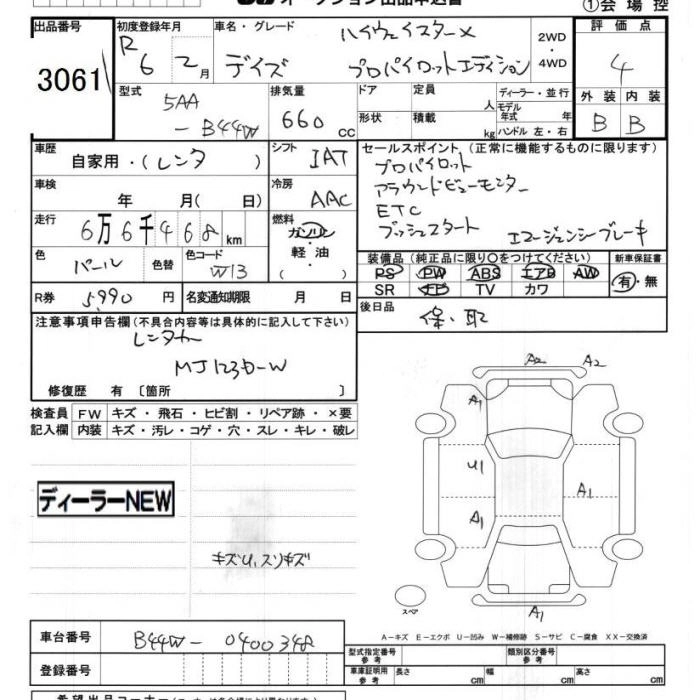 オークション出品申込書
①会場控
出品番号 初度登録年月 車名・グレード 評価点
3061 R 6 2月 デイズ ハイウェイスターX プロパイロットエディション 2WD ・ 4WD 4
型式 排気量 ドア 定員 ディーラー・並行 外装 内装
5AA-B44W 660cc 形状 積載 人 kg モデル年式 年 ハンドル 左・右 B B
車歴 シフト セールスポイント (正常に機能するものに限ります)
自家用・(レンタ) IAT プロパイロット
車検 冷房 アラウンドビューモニター
年 月( 日) AAC ETC
走行 燃料 プッシュスタート エマージェンシーブレーキ
6万6千468km ガソリン 軽油 ・( )
色 パール 色替 色コード W13
装備品 (純正品に限り○をつけてください) 新車保証書
PS PW ABS エアB AW 有・無
SR ナビ TV カワ
R券 5,990円 名変通知期限 月 日
後日品 保・取
注意事項申告欄 (不具合内容等は具体的に記入して下さい)
レンタカー
MJ123D-W
修復歴 有 〔箇所 〕
検査員 FW キズ・飛石・ヒビ割・リペア跡・×要
記入欄 内装 キズ・汚レ・コゲ・穴・スレ・キレ・破レ
A2 A2
A1
U1
A1
A1
ディーラーNEW
キズU,スリキズ
スペア
A1
A-キズ E-エクボ U-凹み W-補修跡 S-サビ C-腐食 XX-交換済
車台番号 B44W-0400348
型式指定番号 参考 類別区分番号 参考
登録番号 車庫証明用 参考 長さ cm 幅 cm 高さ cm